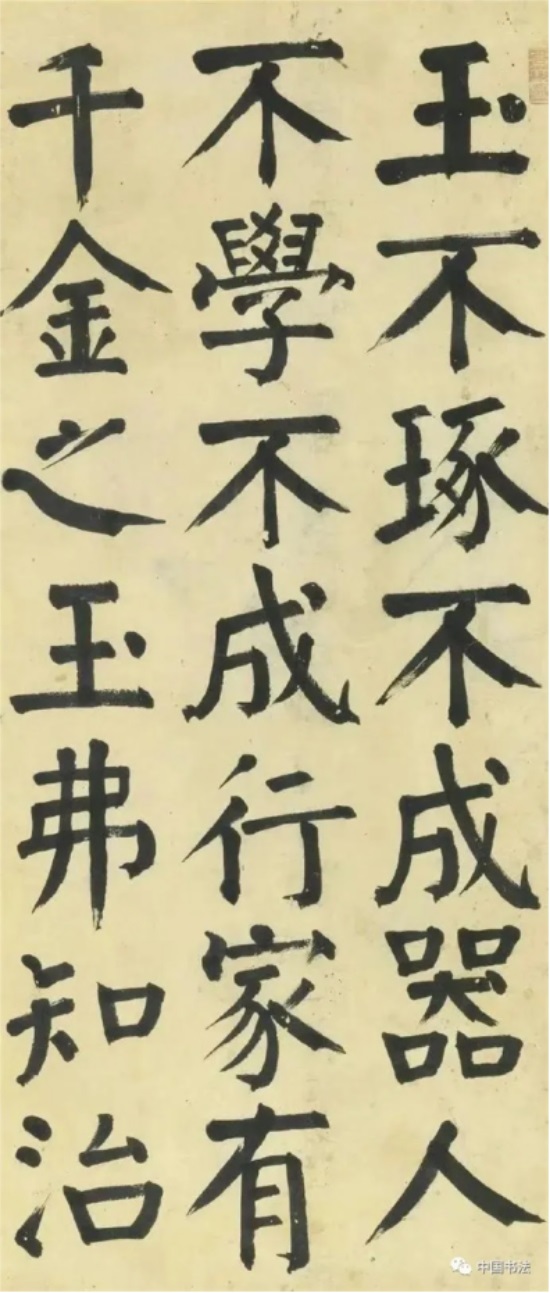 玉不琢不成器人
不學不成行家有
千金之玉弗知治
中国书法